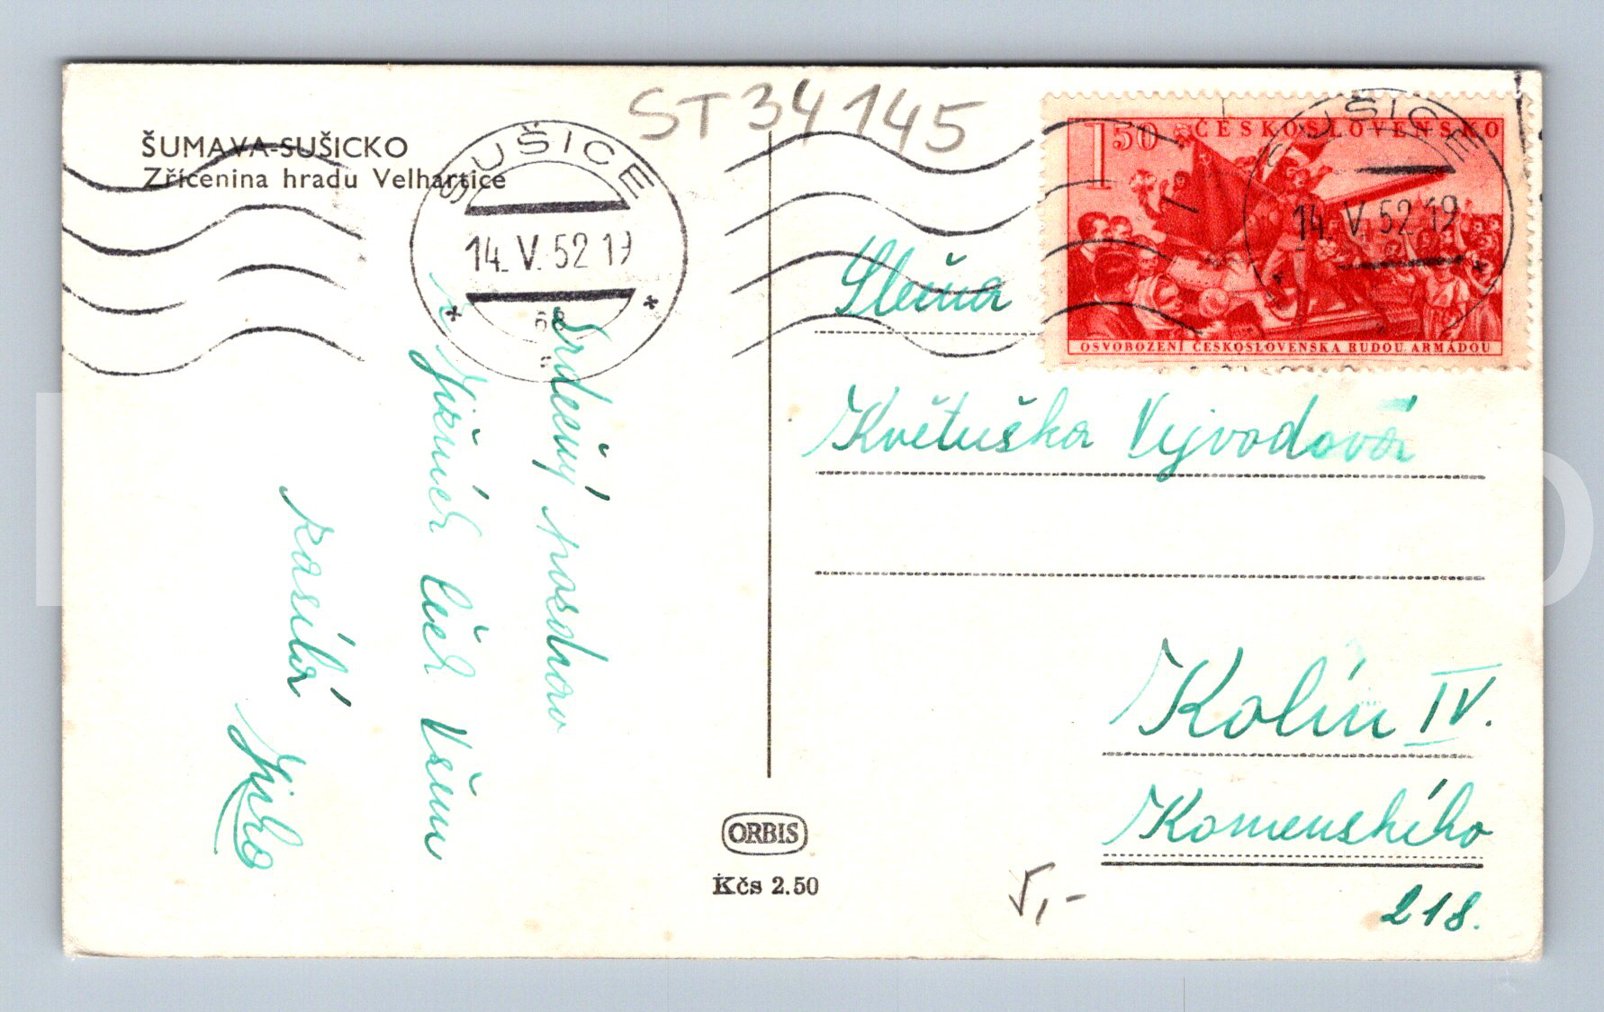 ST34145
ŠUMAVA-SUŠICKO
Zřícenina hradu Velhartice
SUŠICE
14. V. 52 19
6a
1 50 ČESKOSLOVENSKO
OSVOBOZENÍ ČESKOSLOVENSKA RUDOU ARMÁDOU
SUŠICE
14. V. 52 19
Srdečný pozdrav
z
Všem
zasílá
Jirka
Slečna
Květuška Vyvodová
Kolín IV.
Komenského
218.
ORBIS
Kčs 2.50
5,-